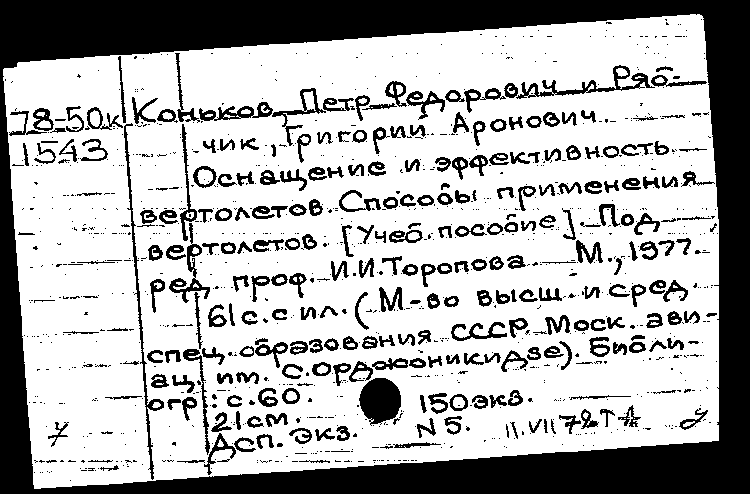 78-50к Коньков, Петр Федорович и Ряб-
1543 чик, Григорий Аронович
Оснащение и эффективность
вертолетов. Способы применения
вертолетов. [Учеб. пособие]. Под
ред. проф. И.И.Торопова. М., 1977.
61 с. с ил. (М-во высш. и сред.
спец. образования СССР. Моск. ави-
ац. им. С.Орджоникидзе). Библи-
огр.: с.60.
21см. 150экз.
Дсп. Экз. N 5.